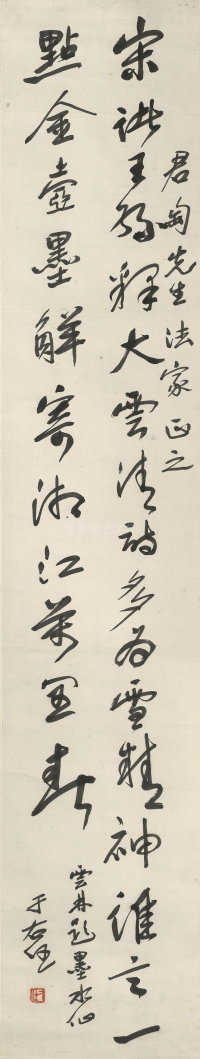 宋諸王孫釋大雲清詩多為雪精神誰言一
點金壺墨解寄湘江萬里春
君匋先生法家正之
雲林題墨水仙
于右任